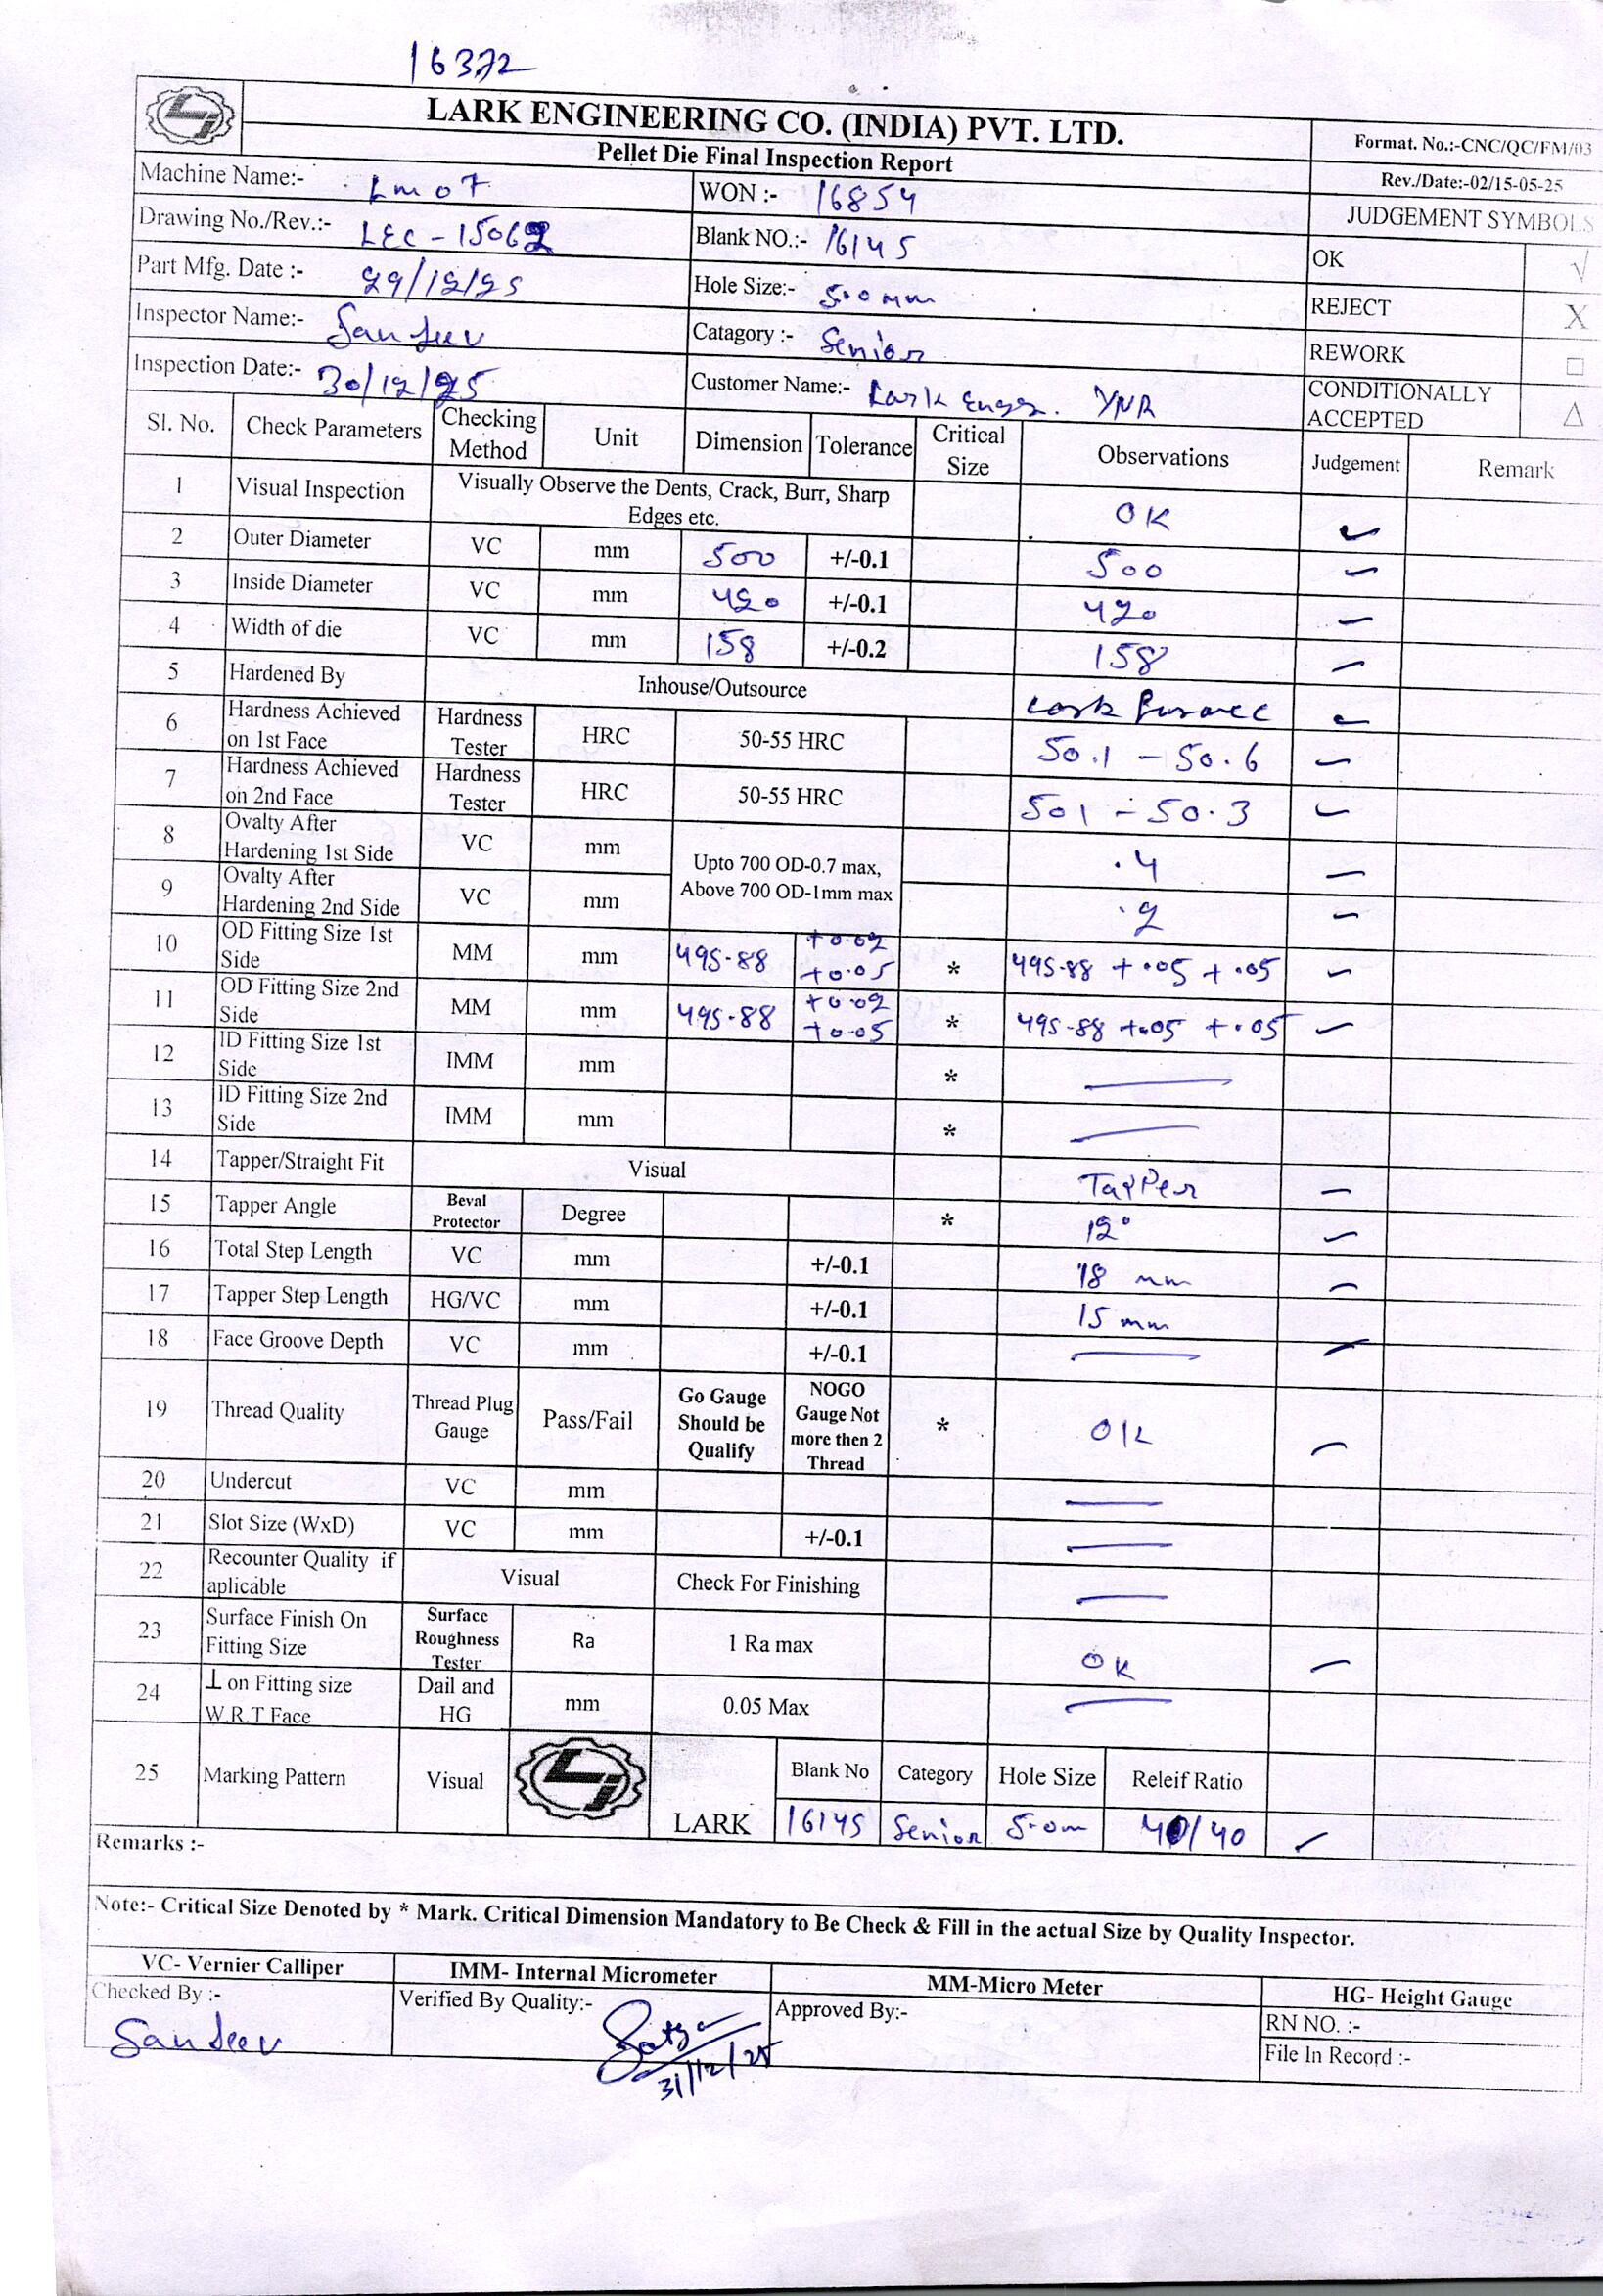 16372
LARK ENGINEERING CO. (INDIA) PVT. LTD.
Pellet Die Final Inspection Report
Format. No.:-CNC/QC/FM/03
Rev./Date:-02/15-05-25
Machine Name:- Lm 07 WON :- 16854
JUDGEMENT SYMBOLS
Drawing No./Rev.:- LEC-15062 Blank NO.:- 16145
OK √
Part Mfg. Date :- 29/12/25 Hole Size:- 5.0 mm
REJECT X
Inspector Name:- Sanjeev Catagory :- Senior
REWORK □
Inspection Date:- 30/12/25 Customer Name:- Lark Engg. YNR
CONDITIONALLY ACCEPTED △
Sl. No. Check Parameters Checking Method Unit Dimension Tolerance Critical Size Observations Judgement Remark
1 Visual Inspection Visually Observe the Dents, Crack, Burr, Sharp Edges etc. OK ✓
2 Outer Diameter VC mm 500 +/-0.1 500 ✓
3 Inside Diameter VC mm 420 +/-0.1 420 ✓
4 Width of die VC mm 158 +/-0.2 158 ✓
5 Hardened By Inhouse/Outsource Lark furnace ✓
6 Hardness Achieved on 1st Face Hardness Tester HRC 50-55 HRC 50.1 - 50.6 ✓
7 Hardness Achieved on 2nd Face Hardness Tester HRC 50-55 HRC 501 - 50.3 ✓
8 Ovalty After Hardening 1st Side VC mm Upto 700 OD-0.7 max, Above 700 OD-1mm max .4 ✓
9 Ovalty After Hardening 2nd Side VC mm .2 ✓
10 OD Fitting Size 1st Side MM mm 495.88 +0.02 +0.05 * 495.88 +.05 +.05 ✓
11 OD Fitting Size 2nd Side MM mm 495.88 +0.02 +0.05 * 495.88 +.05 +.05 ✓
12 ID Fitting Size 1st Side IMM mm * —
13 ID Fitting Size 2nd Side IMM mm * —
14 Tapper/Straight Fit Visual TapPer ✓
15 Tapper Angle Beval Protector Degree * 12° ✓
16 Total Step Length VC mm +/-0.1 18 mm ✓
17 Tapper Step Length HG/VC mm +/-0.1 15 mm
18 Face Groove Depth VC mm +/-0.1 — ✓
19 Thread Quality Thread Plug Gauge Pass/Fail Go Gauge Should be Qualify NOGO Gauge Not more then 2 Thread * OK ✓
20 Undercut VC mm —
21 Slot Size (WxD) VC mm +/-0.1 —
22 Recounter Quality if aplicable Visual Check For Finishing —
23 Surface Finish On Fitting Size Surface Roughness Tester Ra 1 Ra max OK ✓
24 ⊥ on Fitting size W.R.T Face Dail and HG mm 0.05 Max —
25 Marking Pattern Visual LARK Blank No Category Hole Size Releif Ratio
16145 Senior 5.0m 40/40 ✓
Remarks :-
Note:- Critical Size Denoted by * Mark. Critical Dimension Mandatory to Be Check & Fill in the actual Size by Quality Inspector.
VC- Vernier Calliper IMM- Internal Micrometer MM-Micro Meter HG- Height Gauge
Checked By :- Sanjeev Verified By Quality:- Approved By:- RN NO. :-
31/12/25 File In Record :-